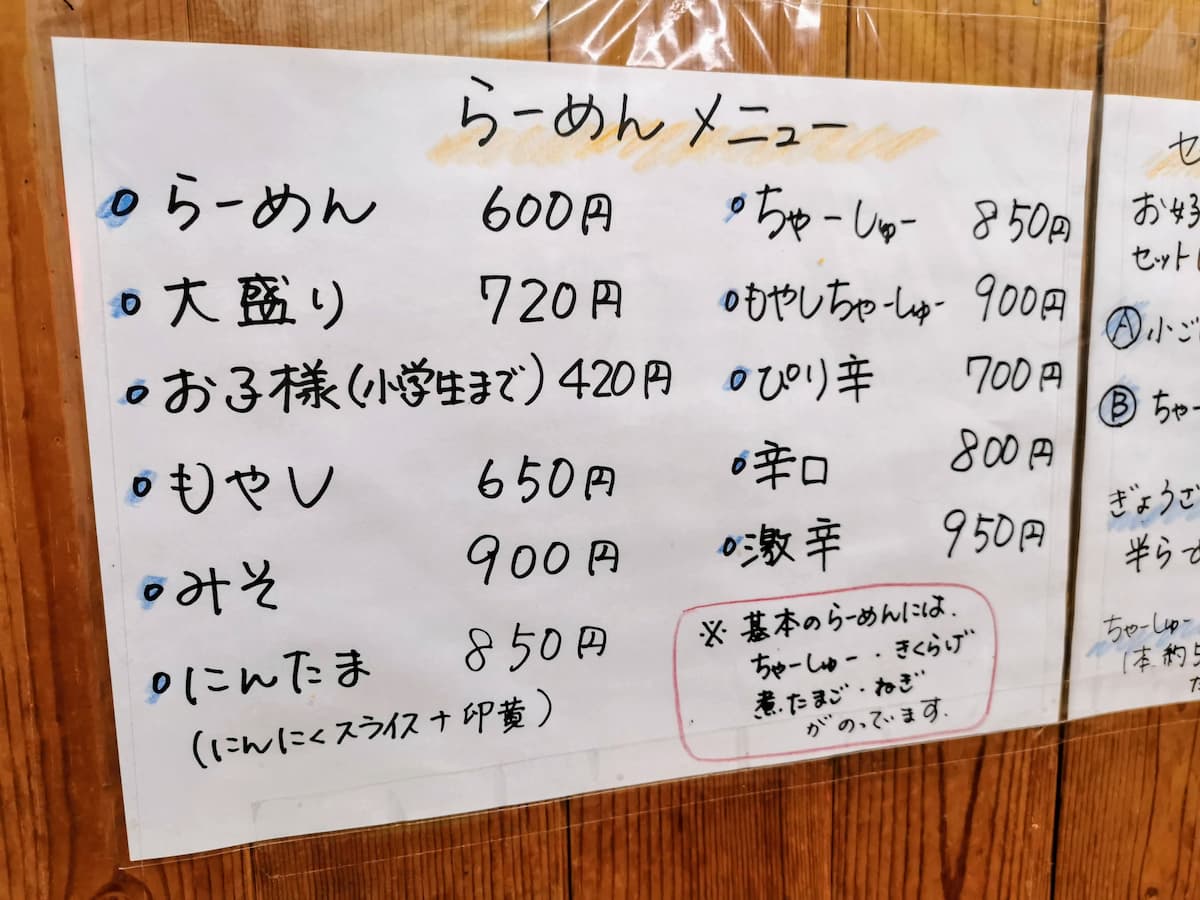 らーめんメニュー
らーめん 600円
大盛り 720円
お子様(小学生まで) 420円
もやし 650円
みそ 900円
にんたま 850円
(にんにくスライス+印黄)
ちゃーしゅー 850円
もやしちゃーしゅー 900円
ぴり辛 700円
辛口 800円
激辛 950円
※ 基本のらーめんには、
ちゃーしゅー・きくらげ
煮たまご・ねぎ
がのっています。
セ
お好
セット
Ⓐ 小ご
Ⓑ ちゃー
ぎょうざ
半らー
ちゃーしゅー
1本 約5